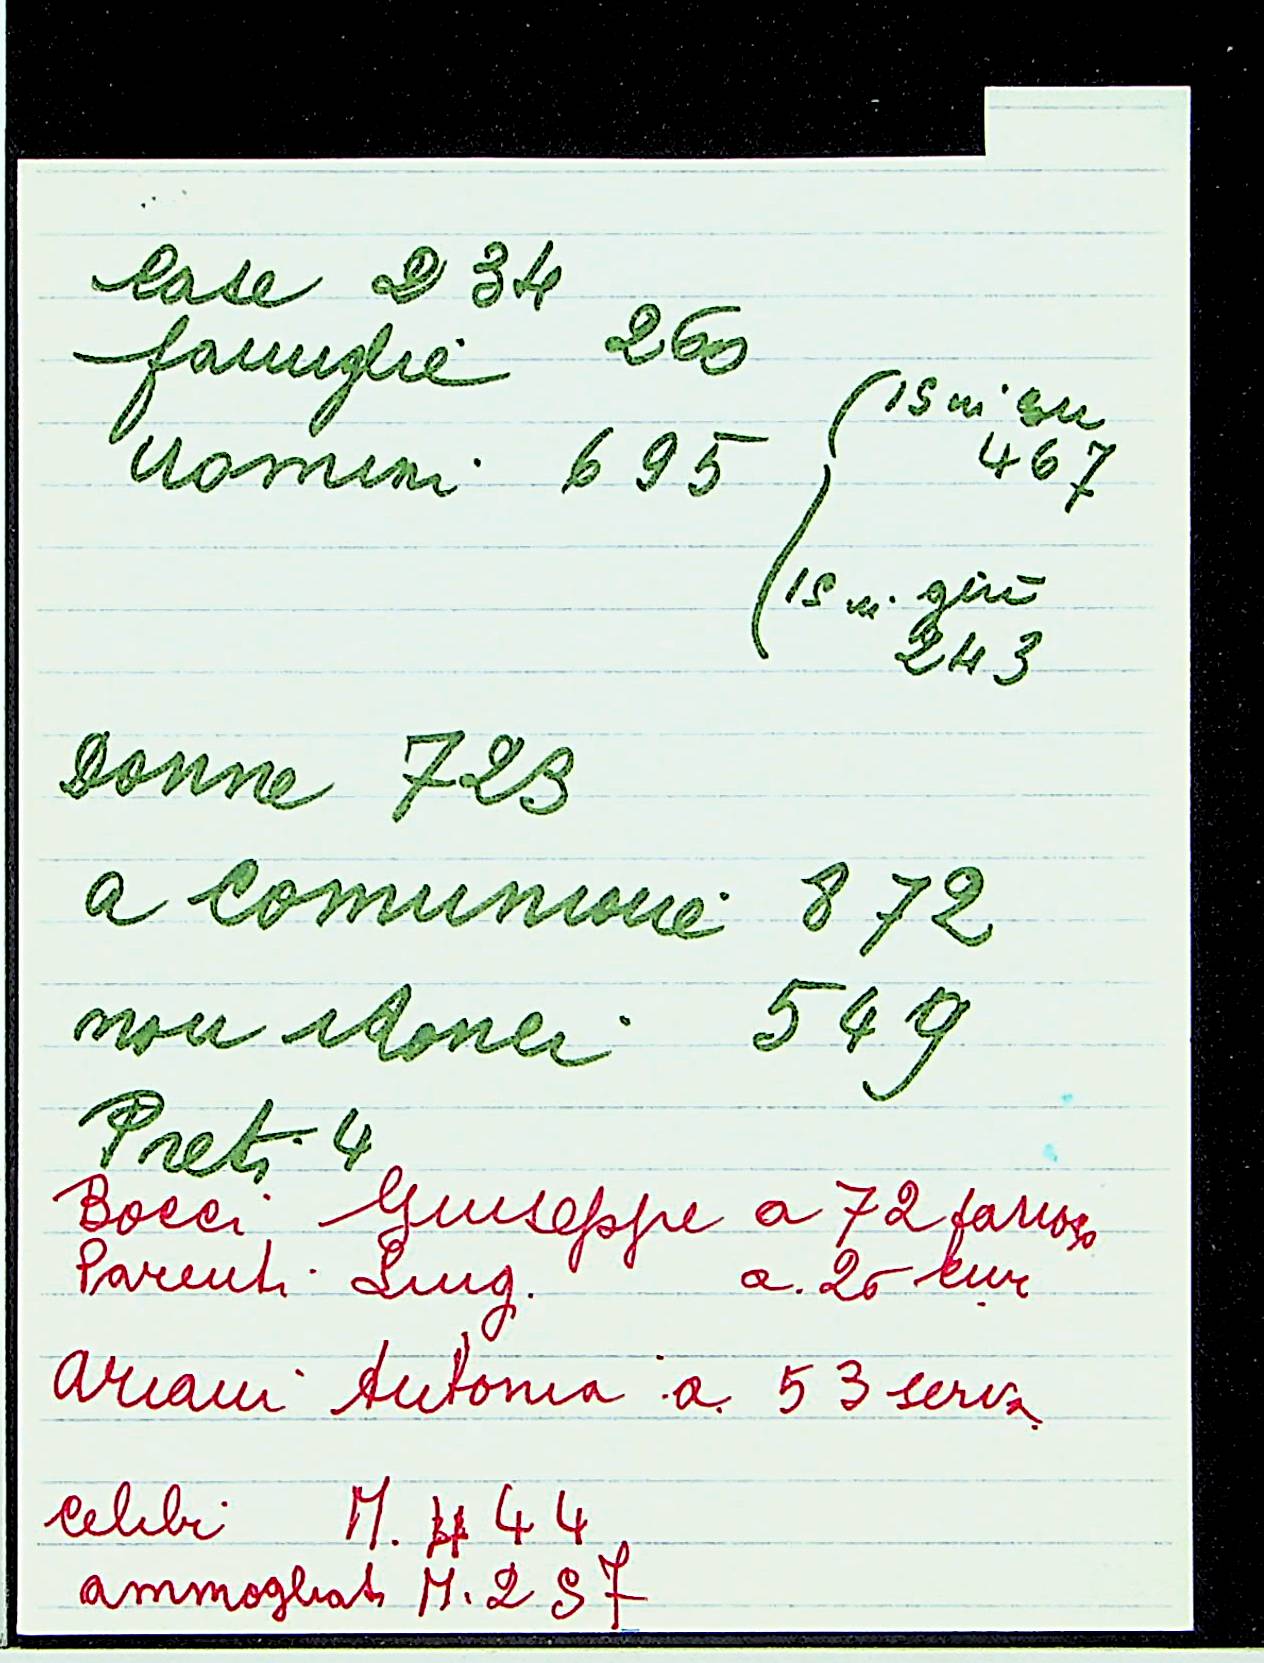 Case 234
famiglie 260
Uomini 695
15 in su
467
15 in giù
243
Donne 723
a Comunione 872
non idonei 549
Preti 4
Bocci Giuseppe a 72 parroco
Parenti Luig. a. 25 cur
Ariani Antonia a. 53 serva
celibi M. 444
ammogliati M. 237